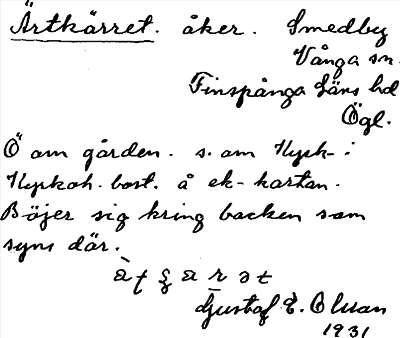 Ärtkärret. åker. Smedby
Vånga sn.
Finspånga läns hd
Ögl.
Ö om gården. s. om Kyrk-:
Kyrkoh. bost. å ek-kartan.
Böjer sig kring backen som
syns där.
Gustaf E. Olsson
1931